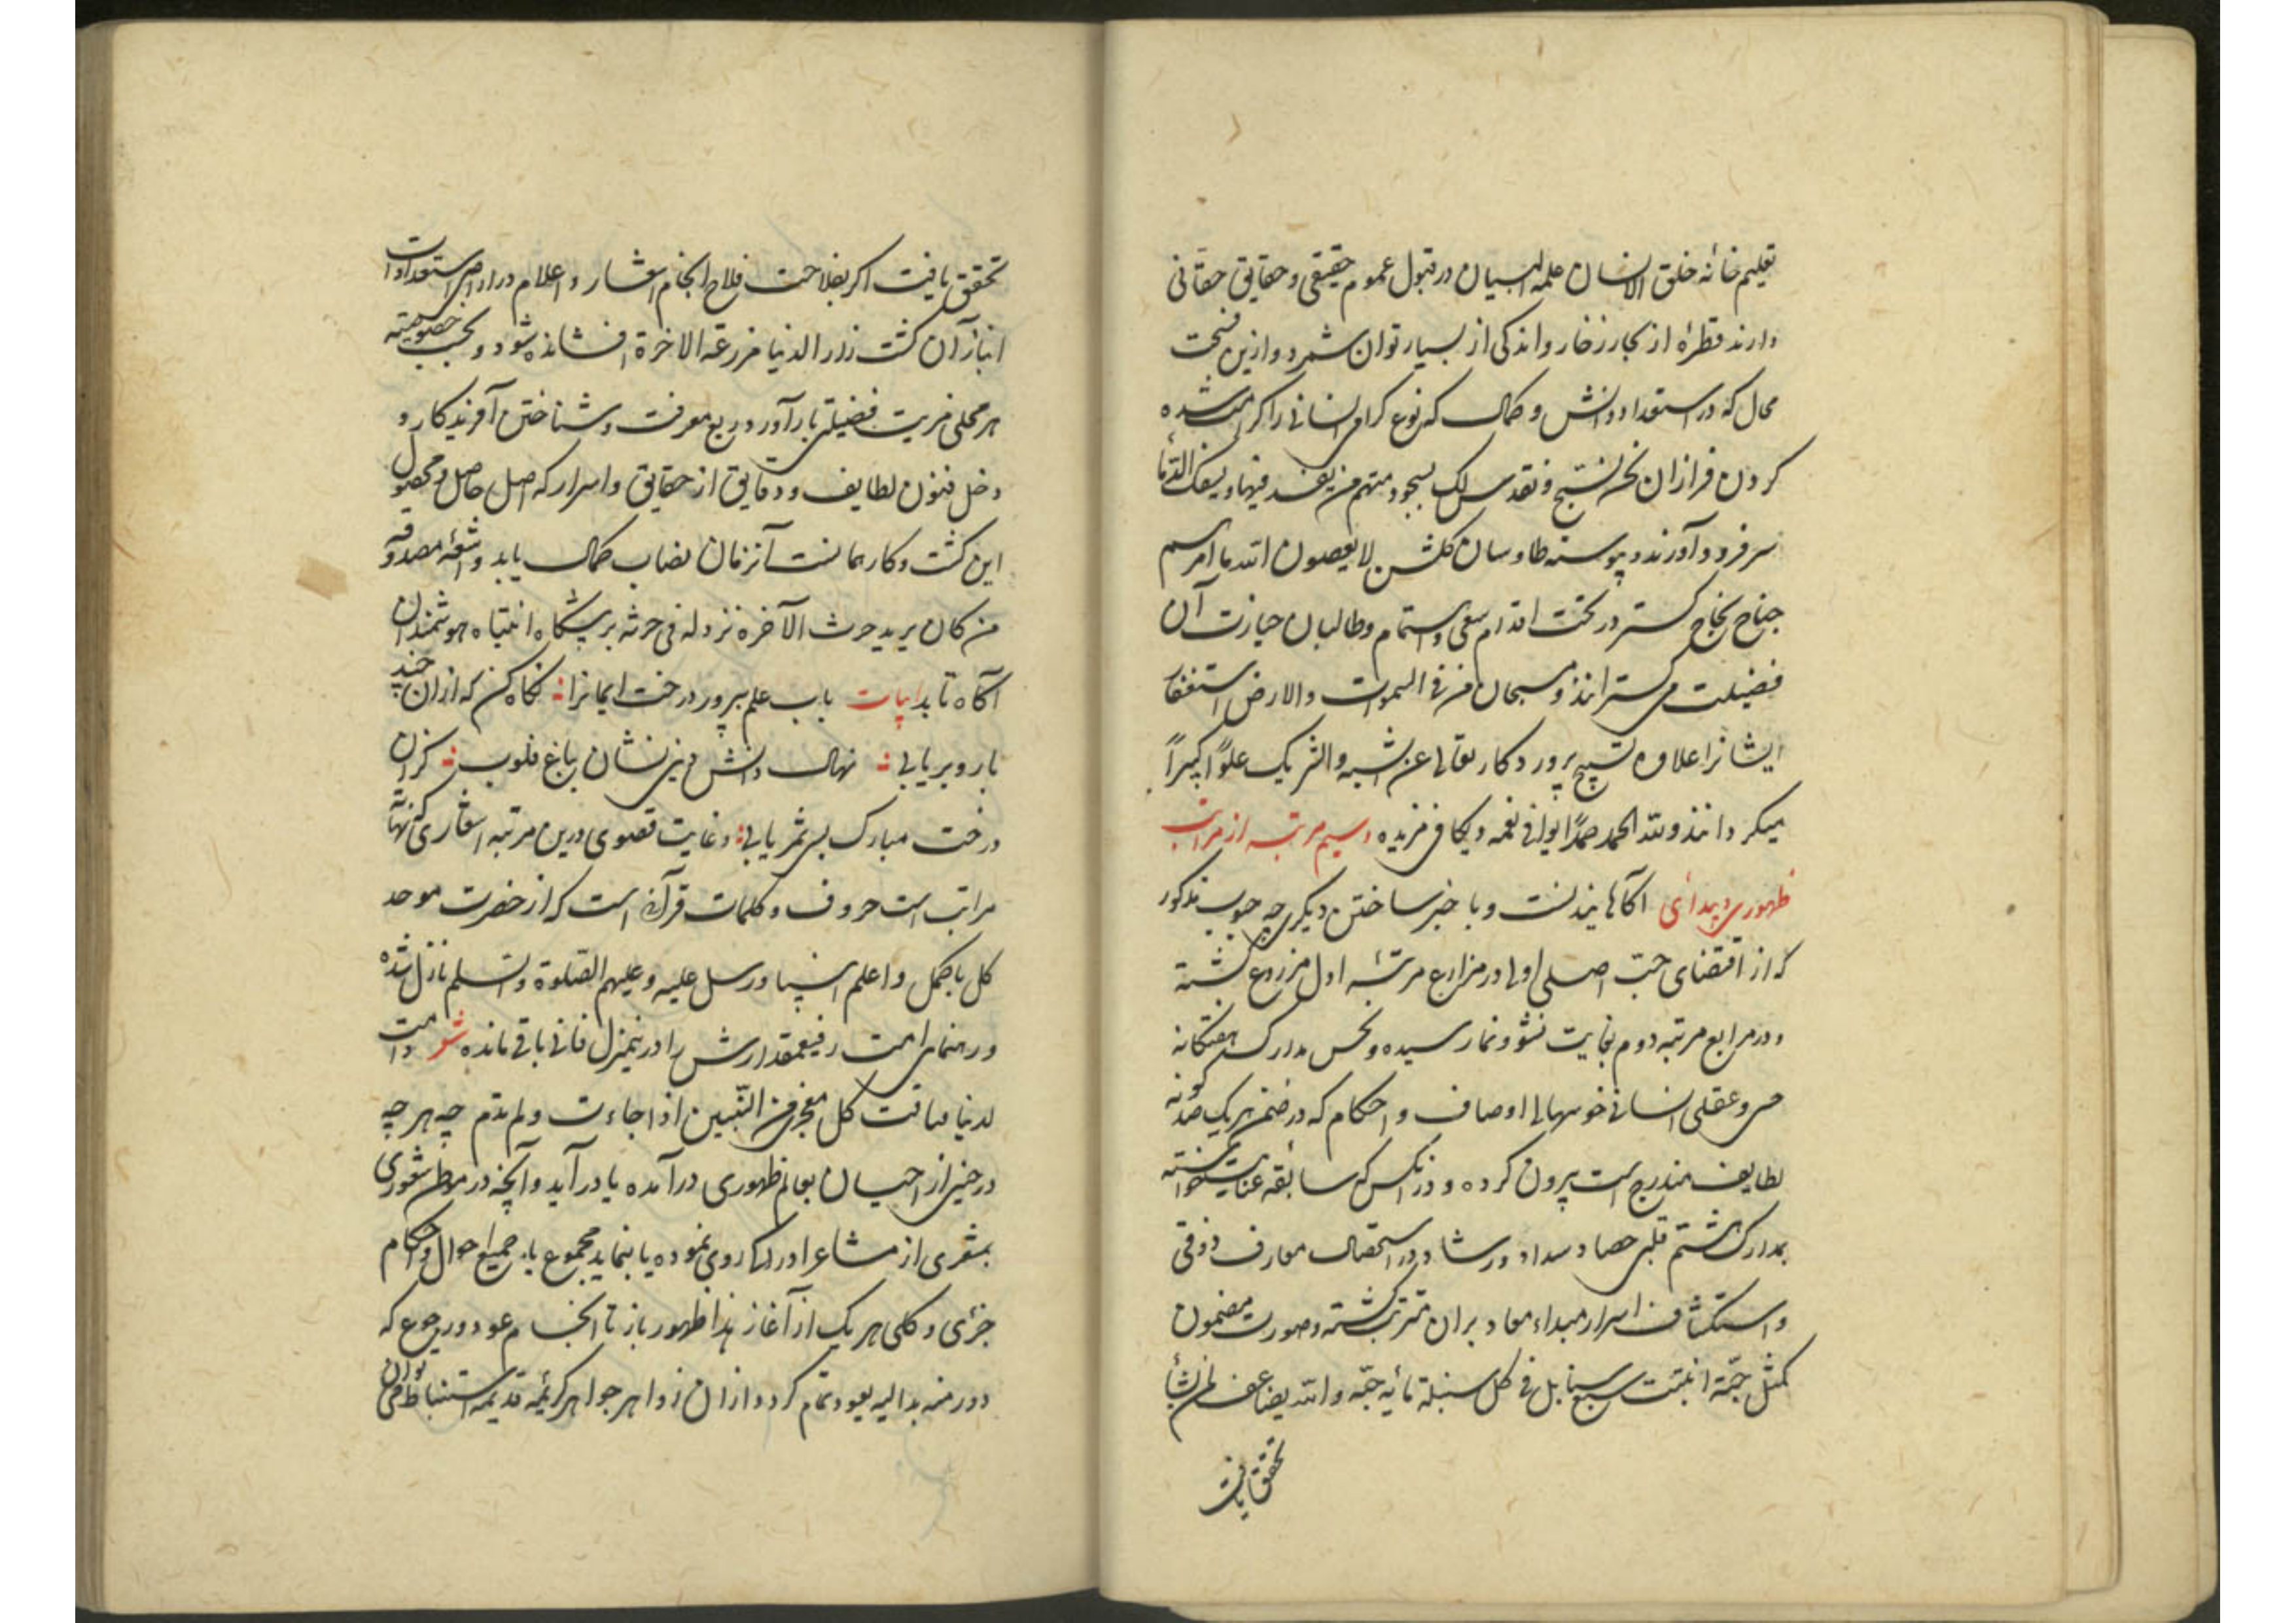 تعلیم خانه خلق الانسان علمه البیان در قبول عموم حقیقی و حقایق حقانی
دارند قطرهٔ از بحار زخار و اندکی از بسیار توان شمرد و ازین فسحت
محال که در استعداد دانش و کمال که نوع کرامی انسانی را کرامت شده
کردن فرازان نحن نسبح و نقدس لک بسجود متهم من یفسد فیها و یسفک الدّما
سر فرود آورند و پیوسته طاوسان کلشن لا یعصون الله ما امرهم
جناح نجاح کستر در تحت اقدام سعی و اهتمام و طالبان حیازت آن
فضیلت می کسترانند و مسبحان من فی السموات والارض استغفار
ایشانرا علاوه تسبیح پرورد کار تعالی عن الشبه والشریک علوًّا کبیراً
میکردانند ولله الحمد حمدًا یوافی نعمه و یکافی مزیده وسیم مرتبه از مراتب
ظهوری و پیدائی آکاهانیدنست و با خبر ساختن دیکری چه حبوب مذکور
که از اقتضای حبّ اصلی اولی در مزارع مرتبهٔ اول مزروع کشته
و در مرابع مرتبه دوم بغایت نشو و نما رسیده و نحس مدارک هفتکانه
حسی و عقلی انسانی خوشهای اوصاف و احکام که در ضمن هر یک صد کونه
لطایف مندرج است پرون کرده و در آنکس که سابقه عنایت خواسته
بمدارک هشتم قلبی حصاد سداد و رشاد در استحصال معارف ذوقی
و استکشاف اسرار مبداء و معاد بران مترتب کشته و صورت مضمون
کمثل حبّة انبتت سبع سنابل فی کل سنبلة مائه حبّه والله یضاعف لمن یشأ
تحقق یافت
تحقق یافت اکر بفلاحت فلاح انجام اشعار و اعلام در اراضی استعدادات
انباز آن کشت زار الدنیا مزرعة الاخرة افشانده شود و بحسب خصوصیته
هر محلی مزیت فضیلتی بار آورد و ریع معرفت و شناختن آفریدکار و
دخل فنون لطایف و دقایق از حقایق و اسرار که اصل حاصل و محصول
این کشت و کار همانست آنزمان نصاب کمال یابد و اشعهٔ مصدوقه
من کان یرید حرث الآخره نزد له فی حرثه بر پیشکاه انتباه هوشمندان
آکاه تابد ابیات باب علم بپرور درخت ایمانرا نکاه کن که ازان چند
بار و بر یابی نهال دانش دینی نشان بباغ قلوب کزان
درخت مبارک بسی ثمر یابی و غایت قصوی درین مرتبه اشعاری که نهایت
مراتب است حروف و کلمات قرآنی است که از حضرت موحد
کل باکمل و اعلم انبیا و رسل علیه و علیهم الصلوة والسلم نازل شده
و رهنمای امت رفیعمقدارش را در ینمنزل فانی باقی مانده شعر دامت
لدینا ففاقت کل معجزة من النّبیین اذ اجاءت و لم تدم چه هر چه
در حینی از احیان بعالم ظهوری درآمده یا درآید و آنچه در موطن شعوری
بمشعری از مشاعر ادراک روی نموده یا بنماید مجموع با جمیع احوال و احکام
جزئی و کلی هر یک از آغاز بدا ظهور باز تا انجام عود و رجوع که
دور منه بدا الیه یعود تمام کردد ازان زواهر جواهر کریمه قدیمه استنباط توان